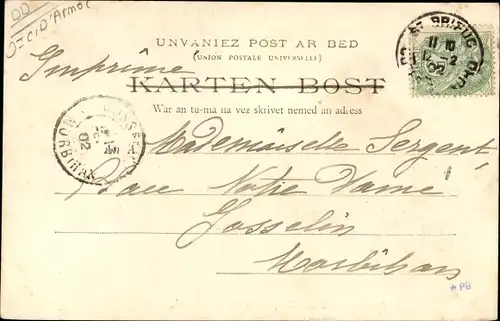 DD
UNVANIEZ POST AR BED
(UNION POSTALE UNIVERSELLE)
Imprimé
KARTEN BOST
War an tu-ma na vez skrivet nemed an adress
ST BRIEUC
11 10
02
Mademoiselle Sergent
MORBIHAN
Place Notre Dame
Josselin
Morbihan
* PB